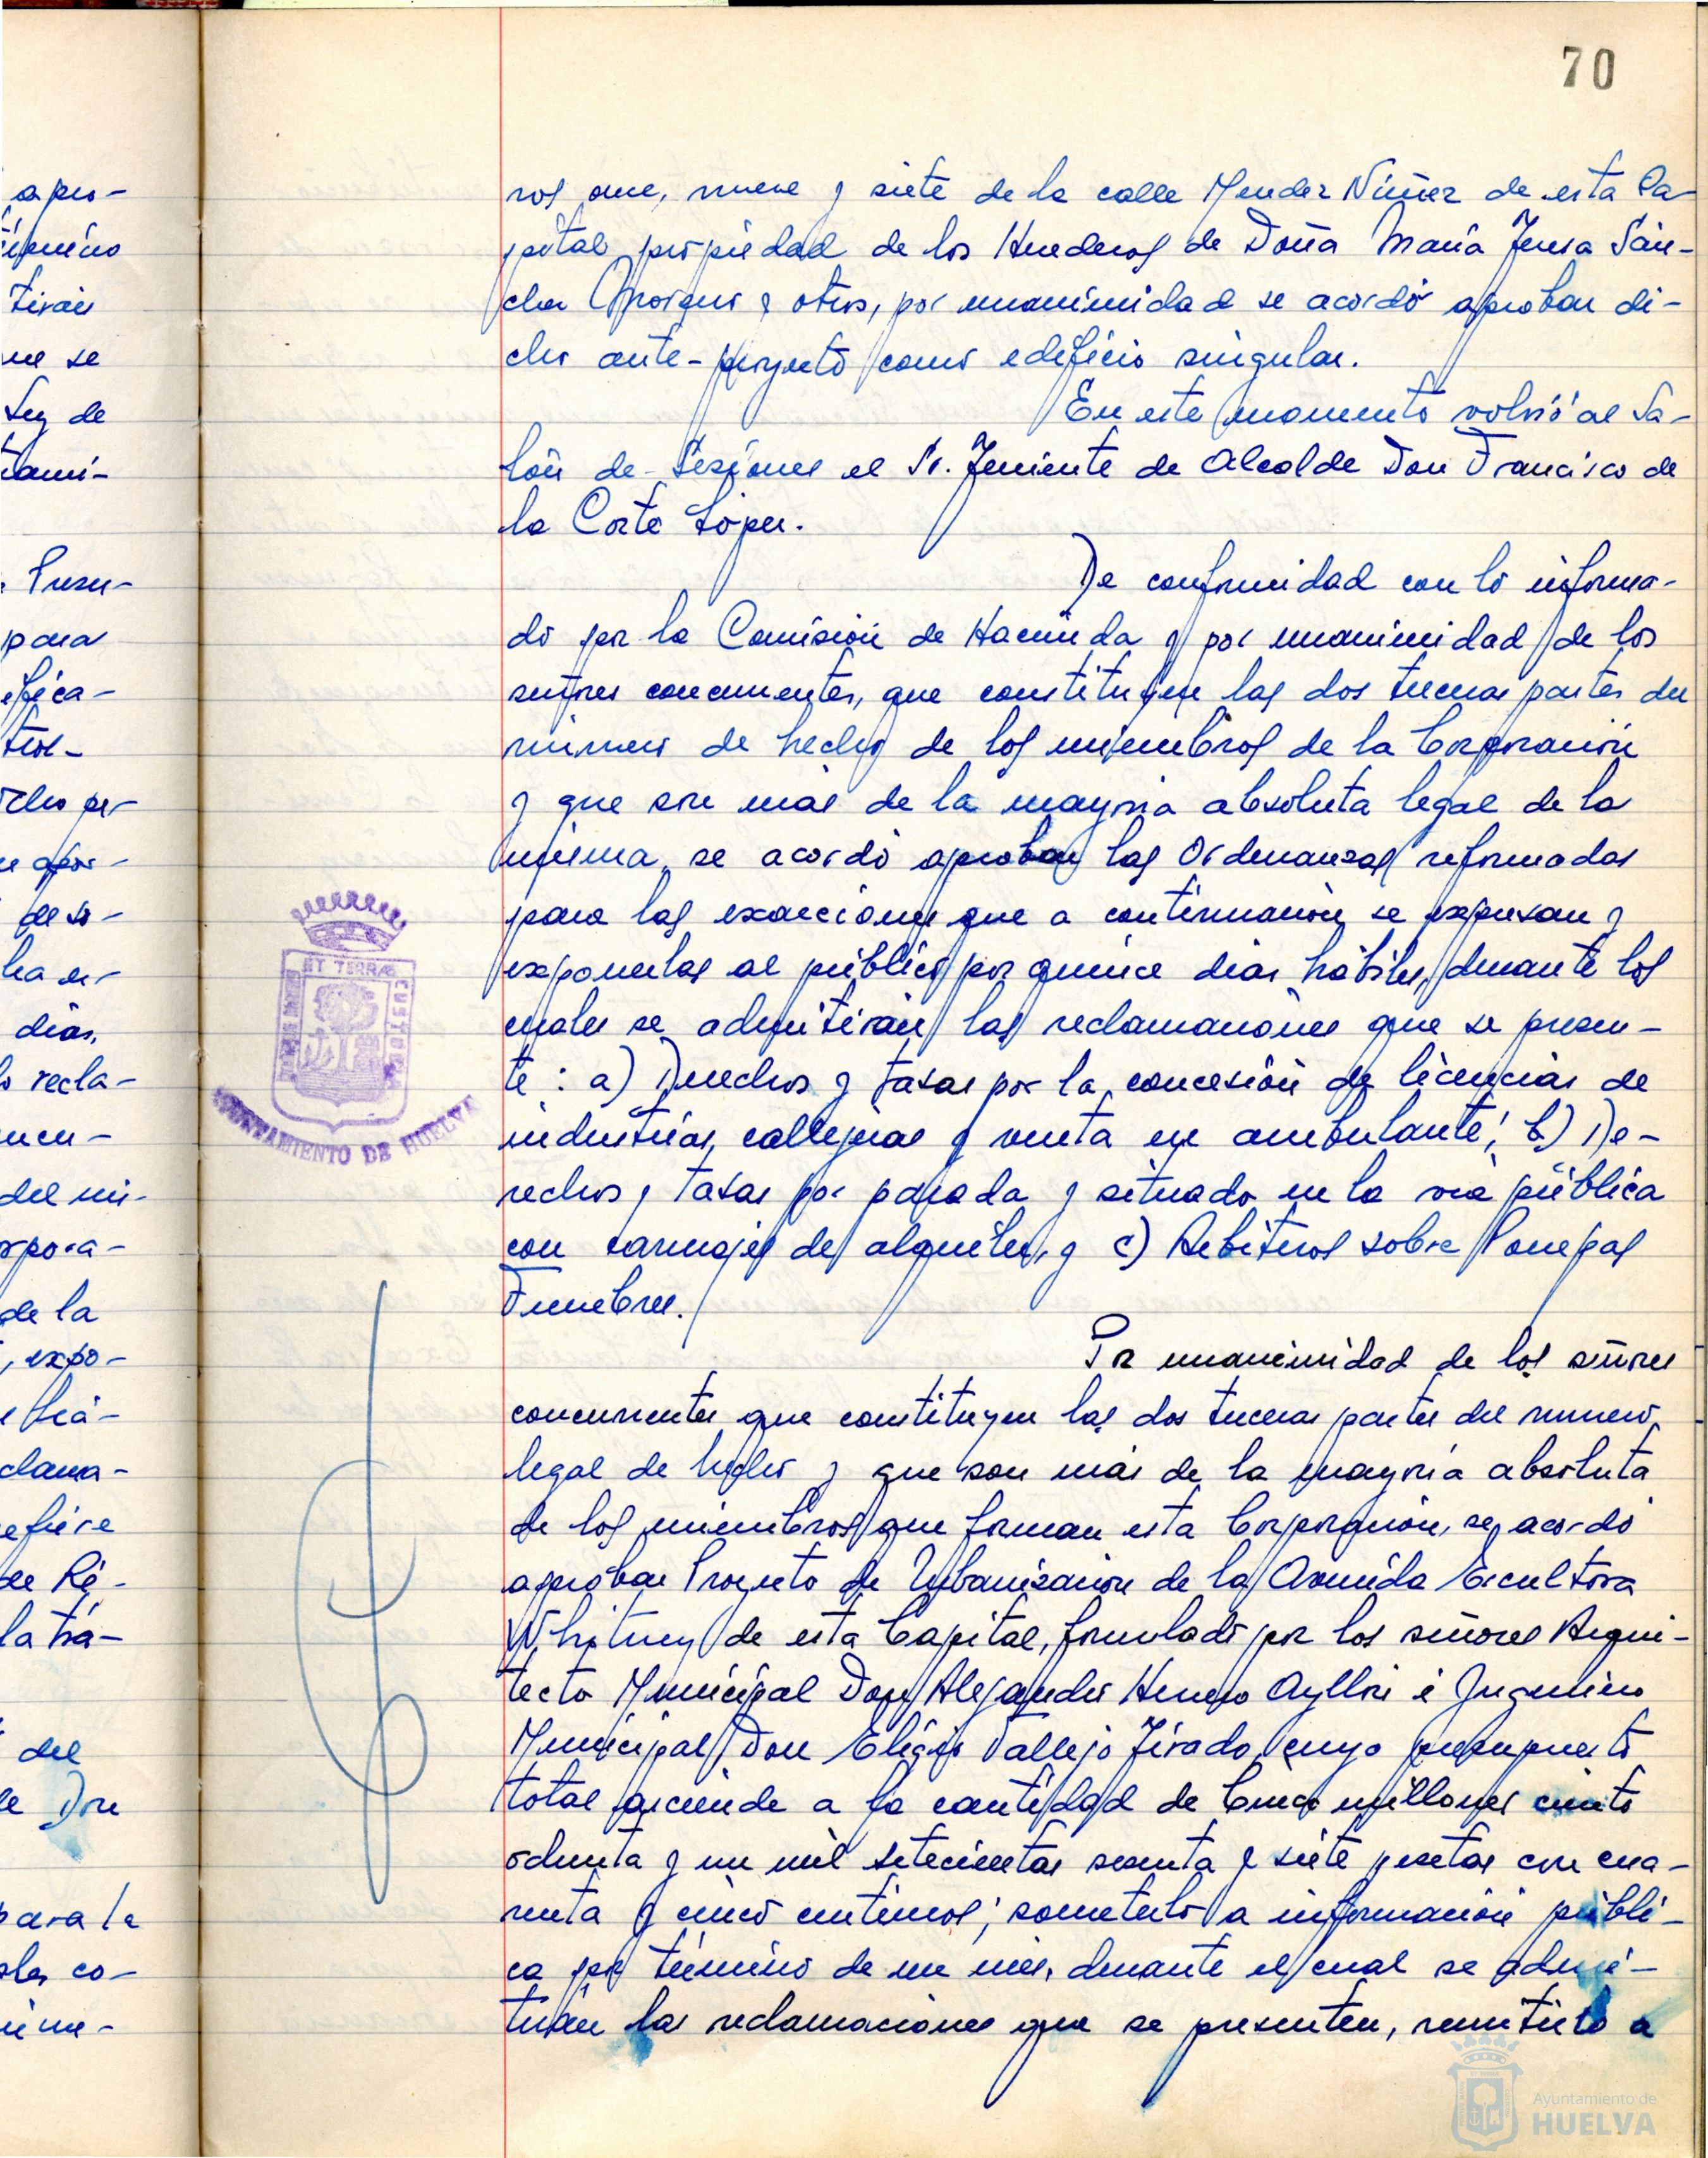 70
ros once, nueve y siete de la calle Mendez Núñez de esta Ca-
pital, propiedad de los Herederos de Doña María Teresa Sán-
chez y otros, por unanimidad se acordó aprobar di-
cho ante-proyecto como edificio singular.
En este momento volvió al Sa-
lón de Sesiones el Sr. Teniente de Alcalde Don Francisco de
la Corte López.
De conformidad con lo informa-
do por la Comisión de Hacienda y por unanimidad de los
señores concurrentes, que constituyen las dos terceras partes del
número de hecho de los miembros de la Corporación
y que son más de la mayoría absoluta legal de la
misma, se acordó aprobar las Ordenanzas reformadas
para las exacciones que a continuación se expresan y
exponerlas al público por quince días hábiles, durante los
cuales se admitirán las reclamaciones que se presen-
te: a) Derechos y tasas por la concesión de licencias de
industrias, callejeras y venta en ambulante; b) De-
rechos y tasas por parada y situado en la vía pública
con carruajes de alquiler, y c) Arbitrios sobre Pompas
Fúnebres.
Por unanimidad de los señores
concurrentes que constituyen las dos terceras partes del número
legal de hecho y que son más de la mayoría absoluta
de los miembros que forman esta Corporación, se acordó
aprobar Proyecto de Urbanización de la Avenida Escultora
Whitney de esta Capital, formulado por los señores Arqui-
tecto Municipal Don Alejandro Herrero Ayllón e Ingeniero
Municipal Don Eligio Vallejo Tirado, cuyo presupuesto
total asciende a la cantidad de Cinco millones ciento
ochenta y un mil setecientas sesenta y siete pesetas con cua-
renta y cinco céntimos; someterlo a información públi-
ca por término de un mes, durante el cual se admi-
tirán las reclamaciones que se presenten, remitirlo a
ET TERRAE
CUSTODIA
AYUNTAMIENTO DE HUELVA
apro-
término
tirán
que se
Ley de
Presu-
para
ifica-
dias,
recla-
del nú-
orpora-
de la
, expo-
clama-
efiere
de Ré-
del
Don
para la
Ayuntamiento de
HUELVA